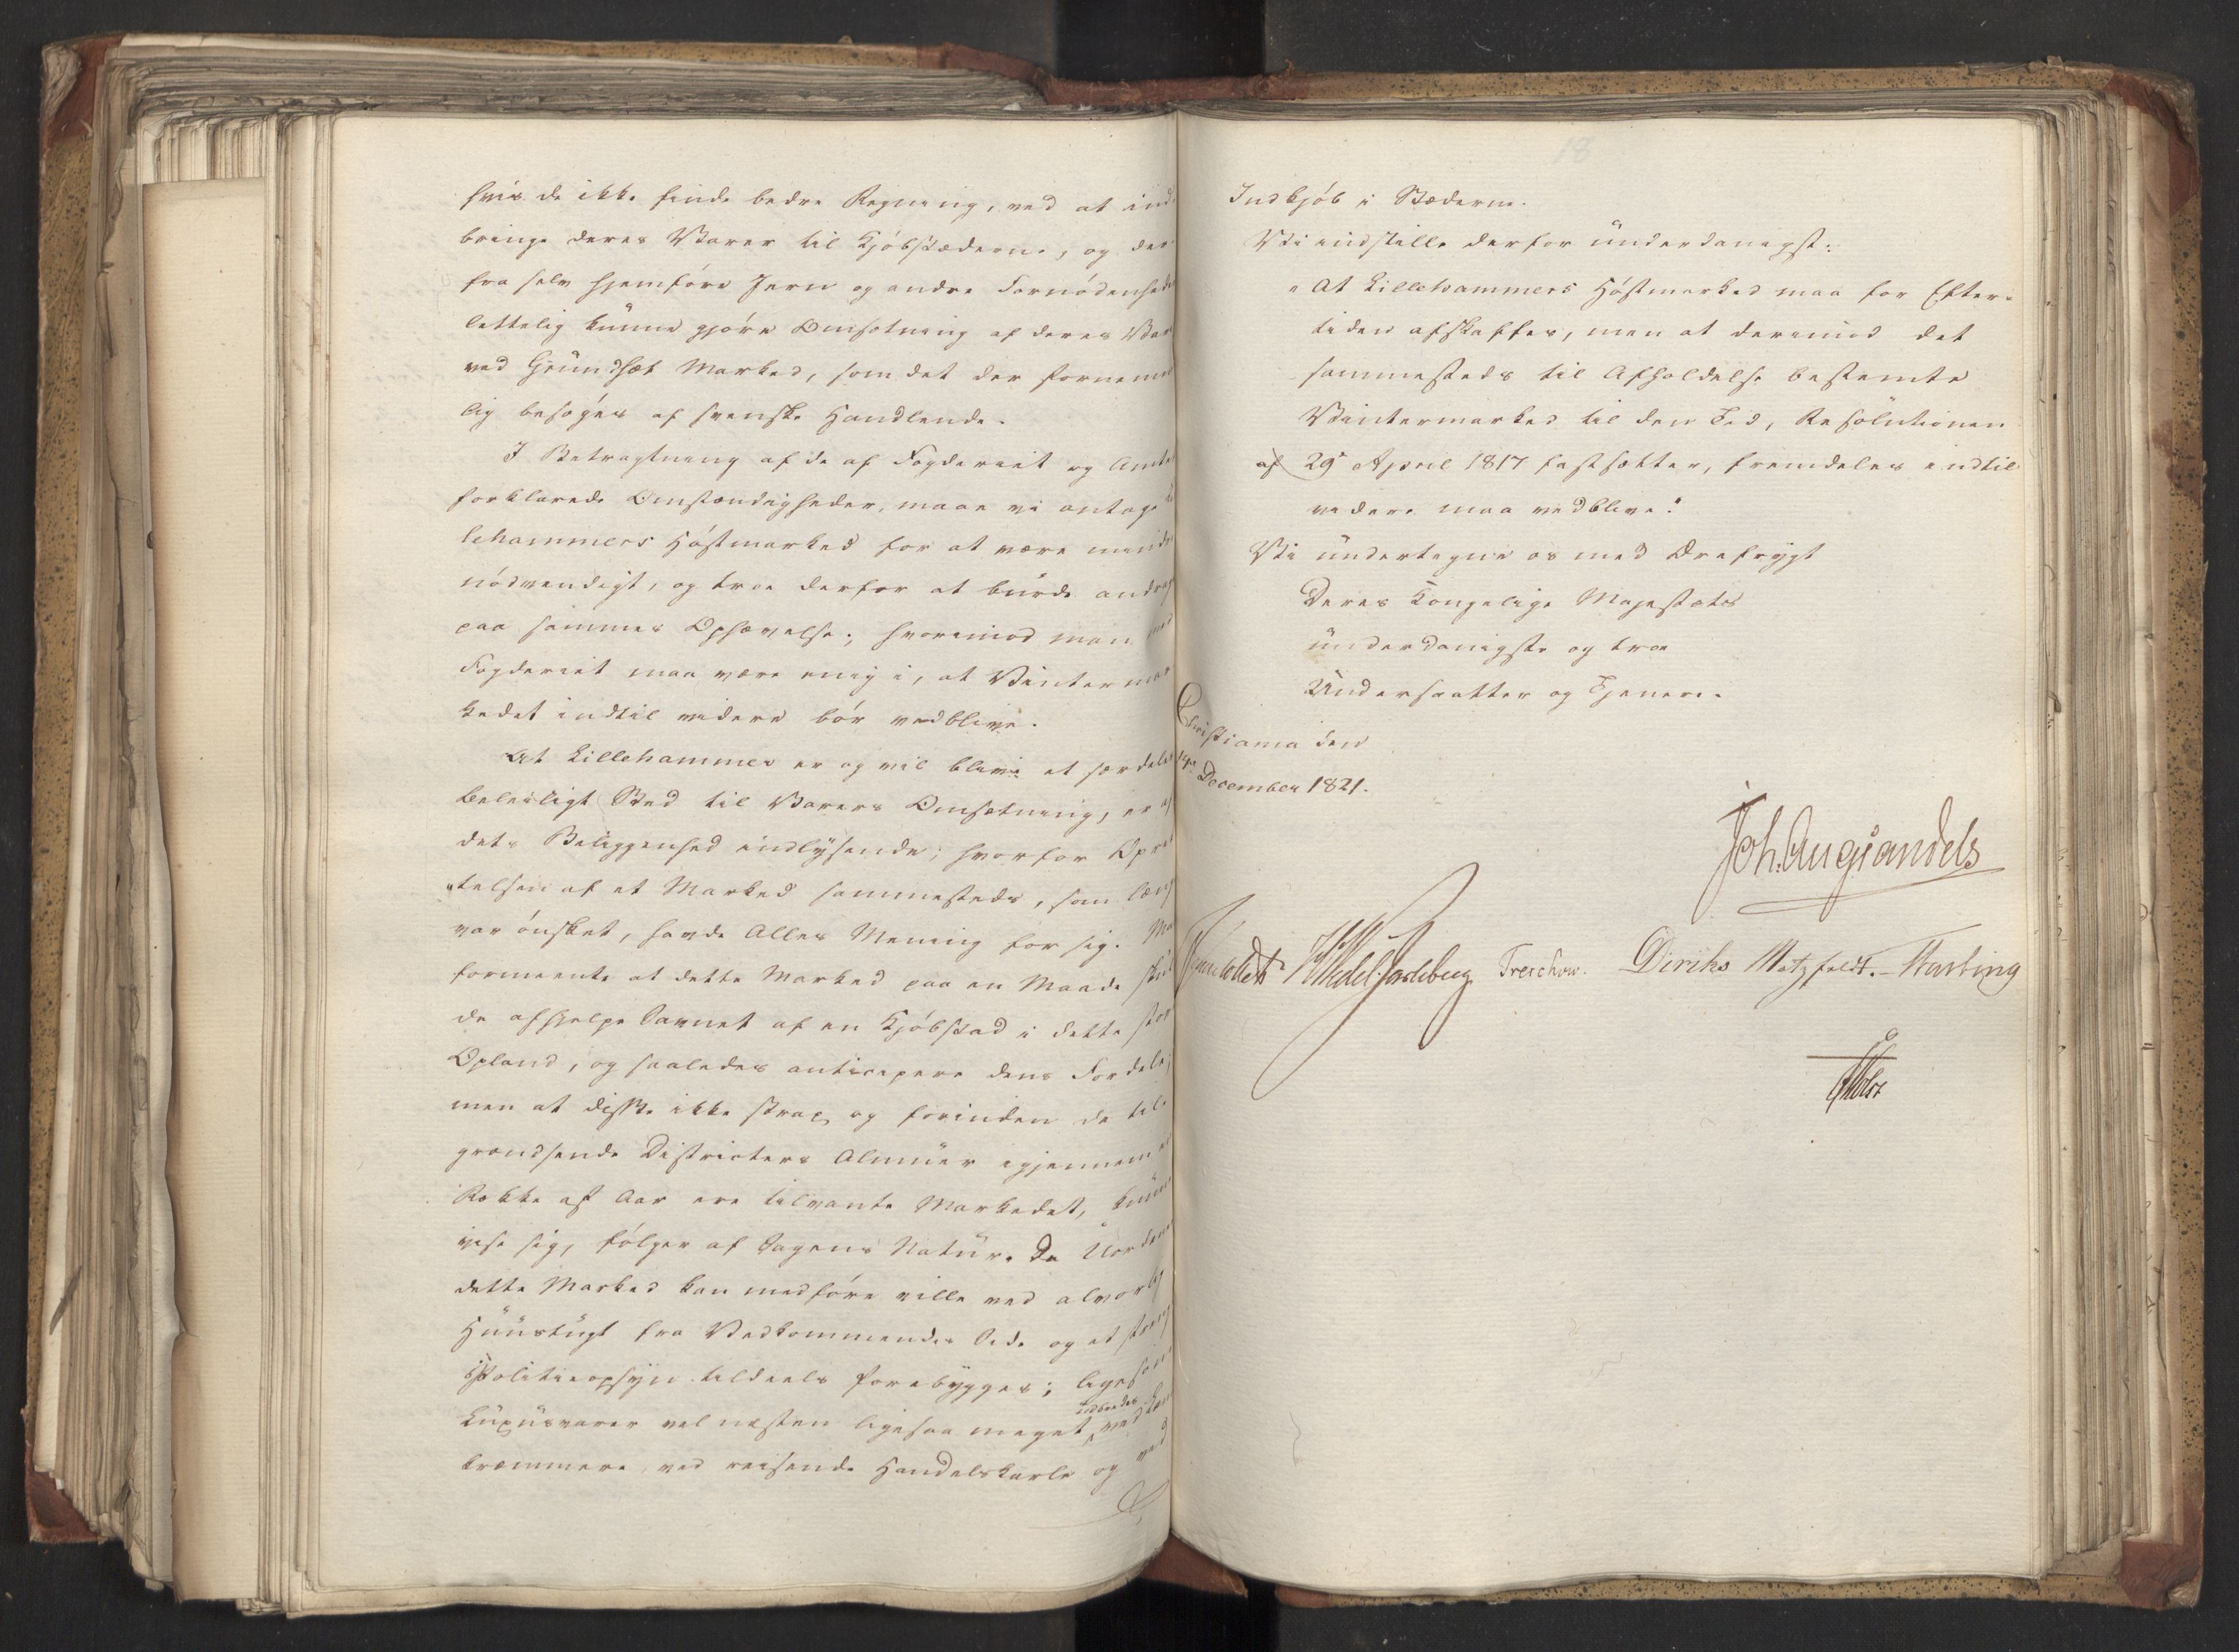 hvis de ikke finde bedre Regning, ved at ind
bringe deres Varer til Kjöbstæderne, og der
fra selv hjemföre Jern og andre Fornödenhede
lettelig kunne gjöre Omsætning af deres Var
ved Grundsæt Marked, som det der fornemme
lig besöges af svenske Handlende.
I Betragtning af de af Fogderiet og Amtet
forklarede Omstændigheder, maae vi antage
lehammers Höstmarked for at være mindre
nödvendigt, og troe derfor at burde andrag
paa sammes Ophævelse; hvorimod man med
Fogderiet maa være enig i, at Vintermar
kedet indtil videre bör vedblive.
At Lillehammer er og vil blive et særdeles
beleiligt Sted til Varers Omsætning, er af
dets Beliggenhed indlysende; hvorfor Opret
telsen af et Marked sammesteds, som læng
var önsket, havde Alles Mening for sig. Ma
formeente at dette Marked paa en Maade skul
de afhjelpe Savnet af en Kjöbstad i dette stor
Opland, og saaledes anticipere dens Fordele;
men at disse ikke strax, og forinden de til
grændsende Districters Almuer igjennem en
Række af Aar ere tilvante Markedet, kunne
vise sig, fölger af Sagens Natur. De Uorden
dette Marked kan medföre ville ved alvorlig
Huustugt fra Vedkommendes Side og et streng
Politieopsyn tildeels forebygges; ligesom
udbredes
Luxusvarer vel næsten ligesaa meget ved
kræmmere, ved reisende Handelskarle og ved
18
Indkjöb i Stæderne.
Vi indstille derfor underdanigst:
"At Lillehammers Höstmarked maa for Efter-
tiden afskaffes, men at derimod det
sammesteds til Afholdelse bestemte
Vintermarked til den Tid, Resolutionen
af 29de April 1817 fastsætter, fremdeles indtil
videre maa vedblive."
Vi undertegne os med Ærefrygt
Deres Kongelige Majestæts
underdanigste og troe
Undersaatter og Tjenere.
Christiania den
14de December 1821.
Joh. Aug. Sandels
Collett Wedel Jarlsberg Treschow. Diriks Motzfeldt. Fasting
Holst